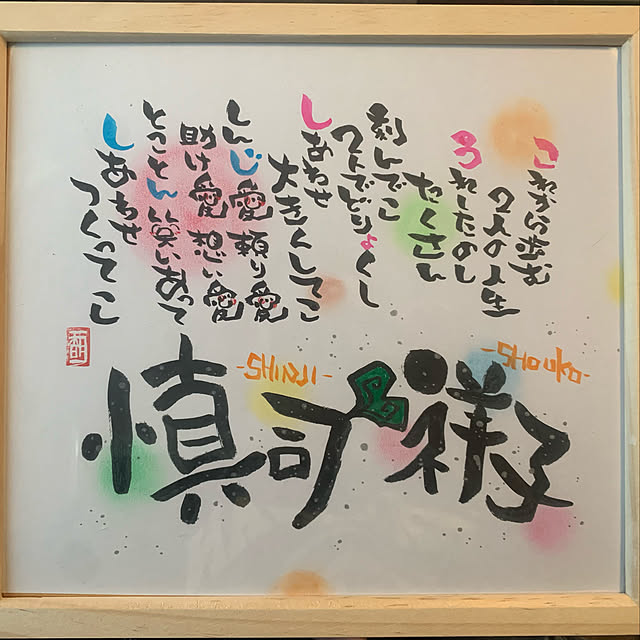 これから歩む
2人の人生
うれしたのし
たくさん
刻んでこ
2人でどりょくし
しあわせ
大きくしてこ
しんじ愛 頼り愛
助け愛 想い愛
とことん笑いあって
しあわせ
つくってこ
-SHINJI-
-SHOUKO-
慎司 祥子